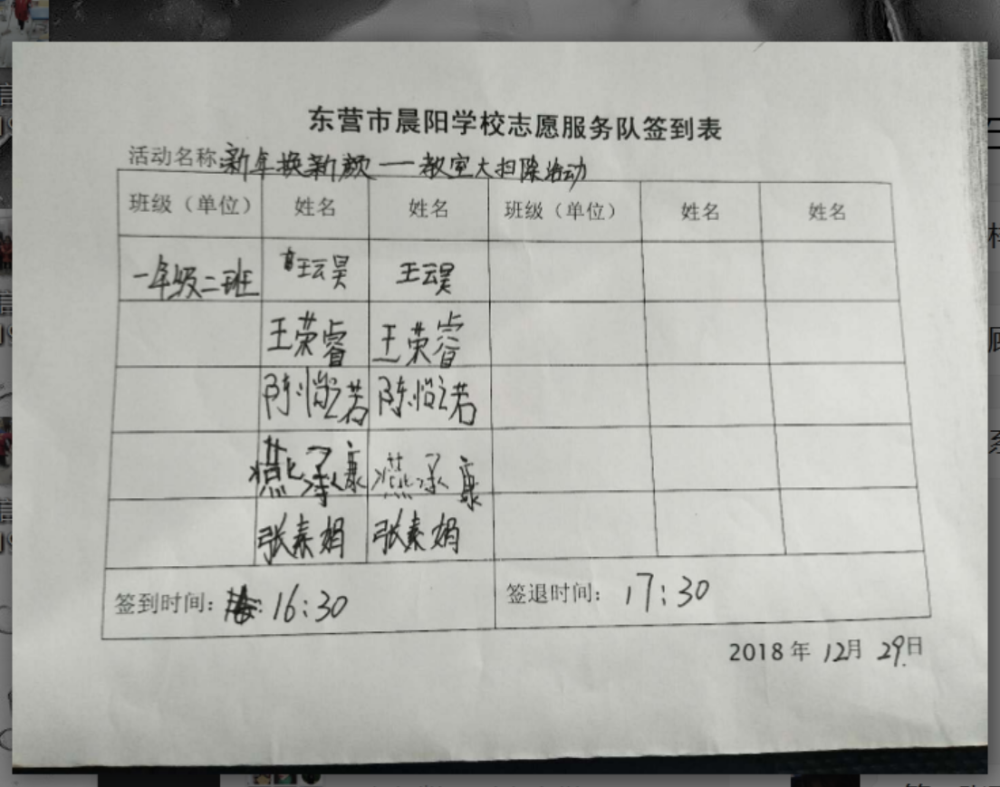 东营市晨阳学校志愿服务队签到表
活动名称 新年换新颜——教室大扫除活动
班级（单位） 姓名 姓名 班级（单位） 姓名 姓名
一年级二班 王云昊 王云昊
王荣睿 王荣睿
陈怡若 陈怡若
燕承康 燕承康
张素娟 张素娟
签到时间：16:30 签退时间：17:30
2018年12月29日